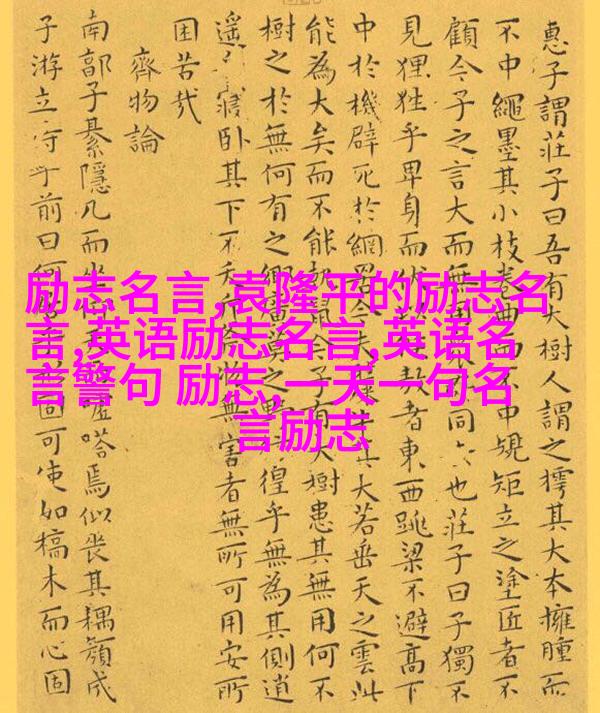 惠子謂莊子曰吾有大樹人謂之樗其大本擁腫而
不中繩墨其小枝卷曲而不中規矩立之塗匠者不
顧今子之言大而無用同也莊子曰子獨不
見狸狌乎卑身而伏敖者東西跳梁不避高下
中於機辟死於網罟今夫其大若垂天之雲此
能為大矣而不能執鼠今子有大樹患其無用何不
樹之於無何有之鄉廣莫之野徨乎無為其側逍
遙寢卧其下不夭物無害者無所可用安所
困苦哉
齊物論
南郭子綦隱几而坐仰噓嗒焉似喪其耦顏成
子游立侍乎前曰何固可使如槁木而心固
励志名言,袁隆平的励志名
言,英语励志名言,英语名
言警句 励志,一天一句名
言励志